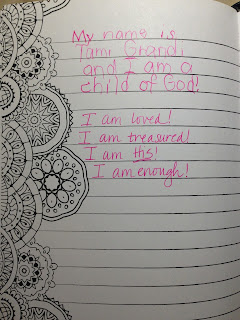 My name is
Tami Grandi
and I am a
child of God!
I am loved!
I am treasured!
I am this!
I am enough!